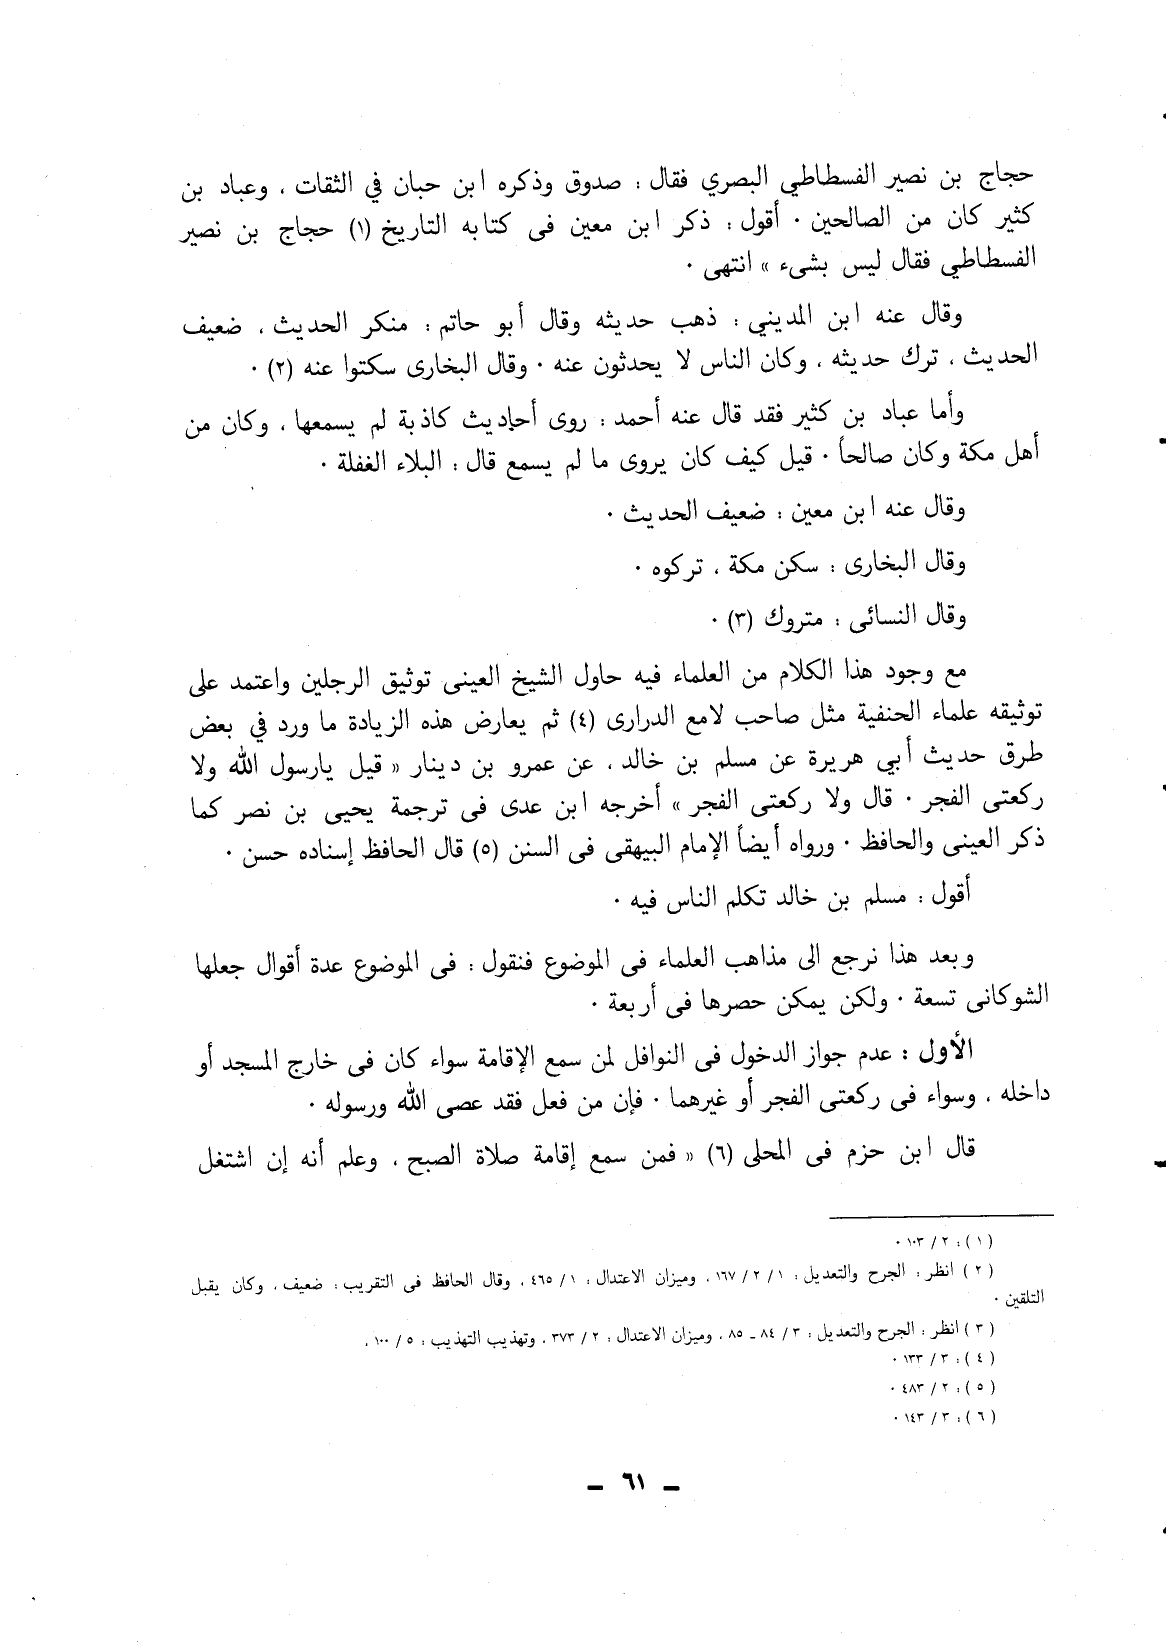 حجاج بن نصير الفسطاطي البصري فقال : صدوق وذكره ابن حبان في الثقات ، وعباد بن
كثير كان من الصالحين . أقول : ذكر ابن معين فى كتابه التاريخ (١) حجاج بن نصير
الفسطاطي فقال ليس بشىء » انتهى .
وقال عنه ابن المديني : ذهب حديثه وقال أبو حاتم : منكر الحديث ، ضعيف
الحديث ، ترك حديثه ، وكان الناس لا يحدثون عنه . وقال البخارى سكتوا عنه (٢) .
وأما عباد بن كثير فقد قال عنه أحمد : روى أحاديث كاذبة لم يسمعها ، وكان من
أهل مكة وكان صالحاً . قيل كيف كان يروى ما لم يسمع قال : البلاء الغفلة .
وقال عنه ابن معين : ضعيف الحديث .
وقال البخارى : سكن مكة ، تركوه .
وقال النسائى : متروك (٣) .
مع وجود هذا الكلام من العلماء فيه حاول الشيخ العينى توثيق الرجلين واعتمد على
توثيقه علماء الحنفية مثل صاحب لامع الدرارى (٤) ثم يعارض هذه الزيادة ما ورد في بعض
طرق حديث أبي هريرة عن مسلم بن خالد ، عن عمرو بن دينار « قيل يارسول الله ولا
ركعتى الفجر . قال ولا ركعتى الفجر » أخرجه ابن عدى فى ترجمة يحيى بن نصر كما
ذكر العينى والحافظ . ورواه أيضاً الإمام البيهقى فى السنن (٥) قال الحافظ إسناده حسن .
أقول : مسلم بن خالد تكلم الناس فيه .
وبعد هذا نرجع الى مذاهب العلماء فى الموضوع فنقول : فى الموضوع عدة أقوال جعلها
الشوكانى تسعة . ولكن يمكن حصرها فى أربعة .
الأول : عدم جواز الدخول فى النوافل لمن سمع الإقامة سواء كان فى خارج المسجد أو
داخله ، وسواء فى ركعتى الفجر أو غيرهما . فإن من فعل فقد عصى الله ورسوله .
قال ابن حزم فى المحلى (٦) « فمن سمع إقامة صلاة الصبح ، وعلم أنه إن اشتغل
(١) : ٢ / ١٠٣ .
(٢) انظر : الجرح والتعديل : ١ / ٢ / ١٦٧ ، وميزان الاعتدال : ١ / ٤٦٥ ، وقال الحافظ فى التقريب : ضعيف ، وكان يقبل
التلقين .
(٣) انظر : الجرح والتعديل : ٣ / ٨٤ ـ ٨٥ ، وميزان الاعتدال : ٢ / ٣٧٣ ، وتهذيب التهذيب : ٥ / ١٠٠ ،
(٤) : ٣ / ١٣٣ .
(٥) : ٢ / ٤٨٣ .
(٦) : ٣ / ١٤٣ .
ـ ٦١ ـ